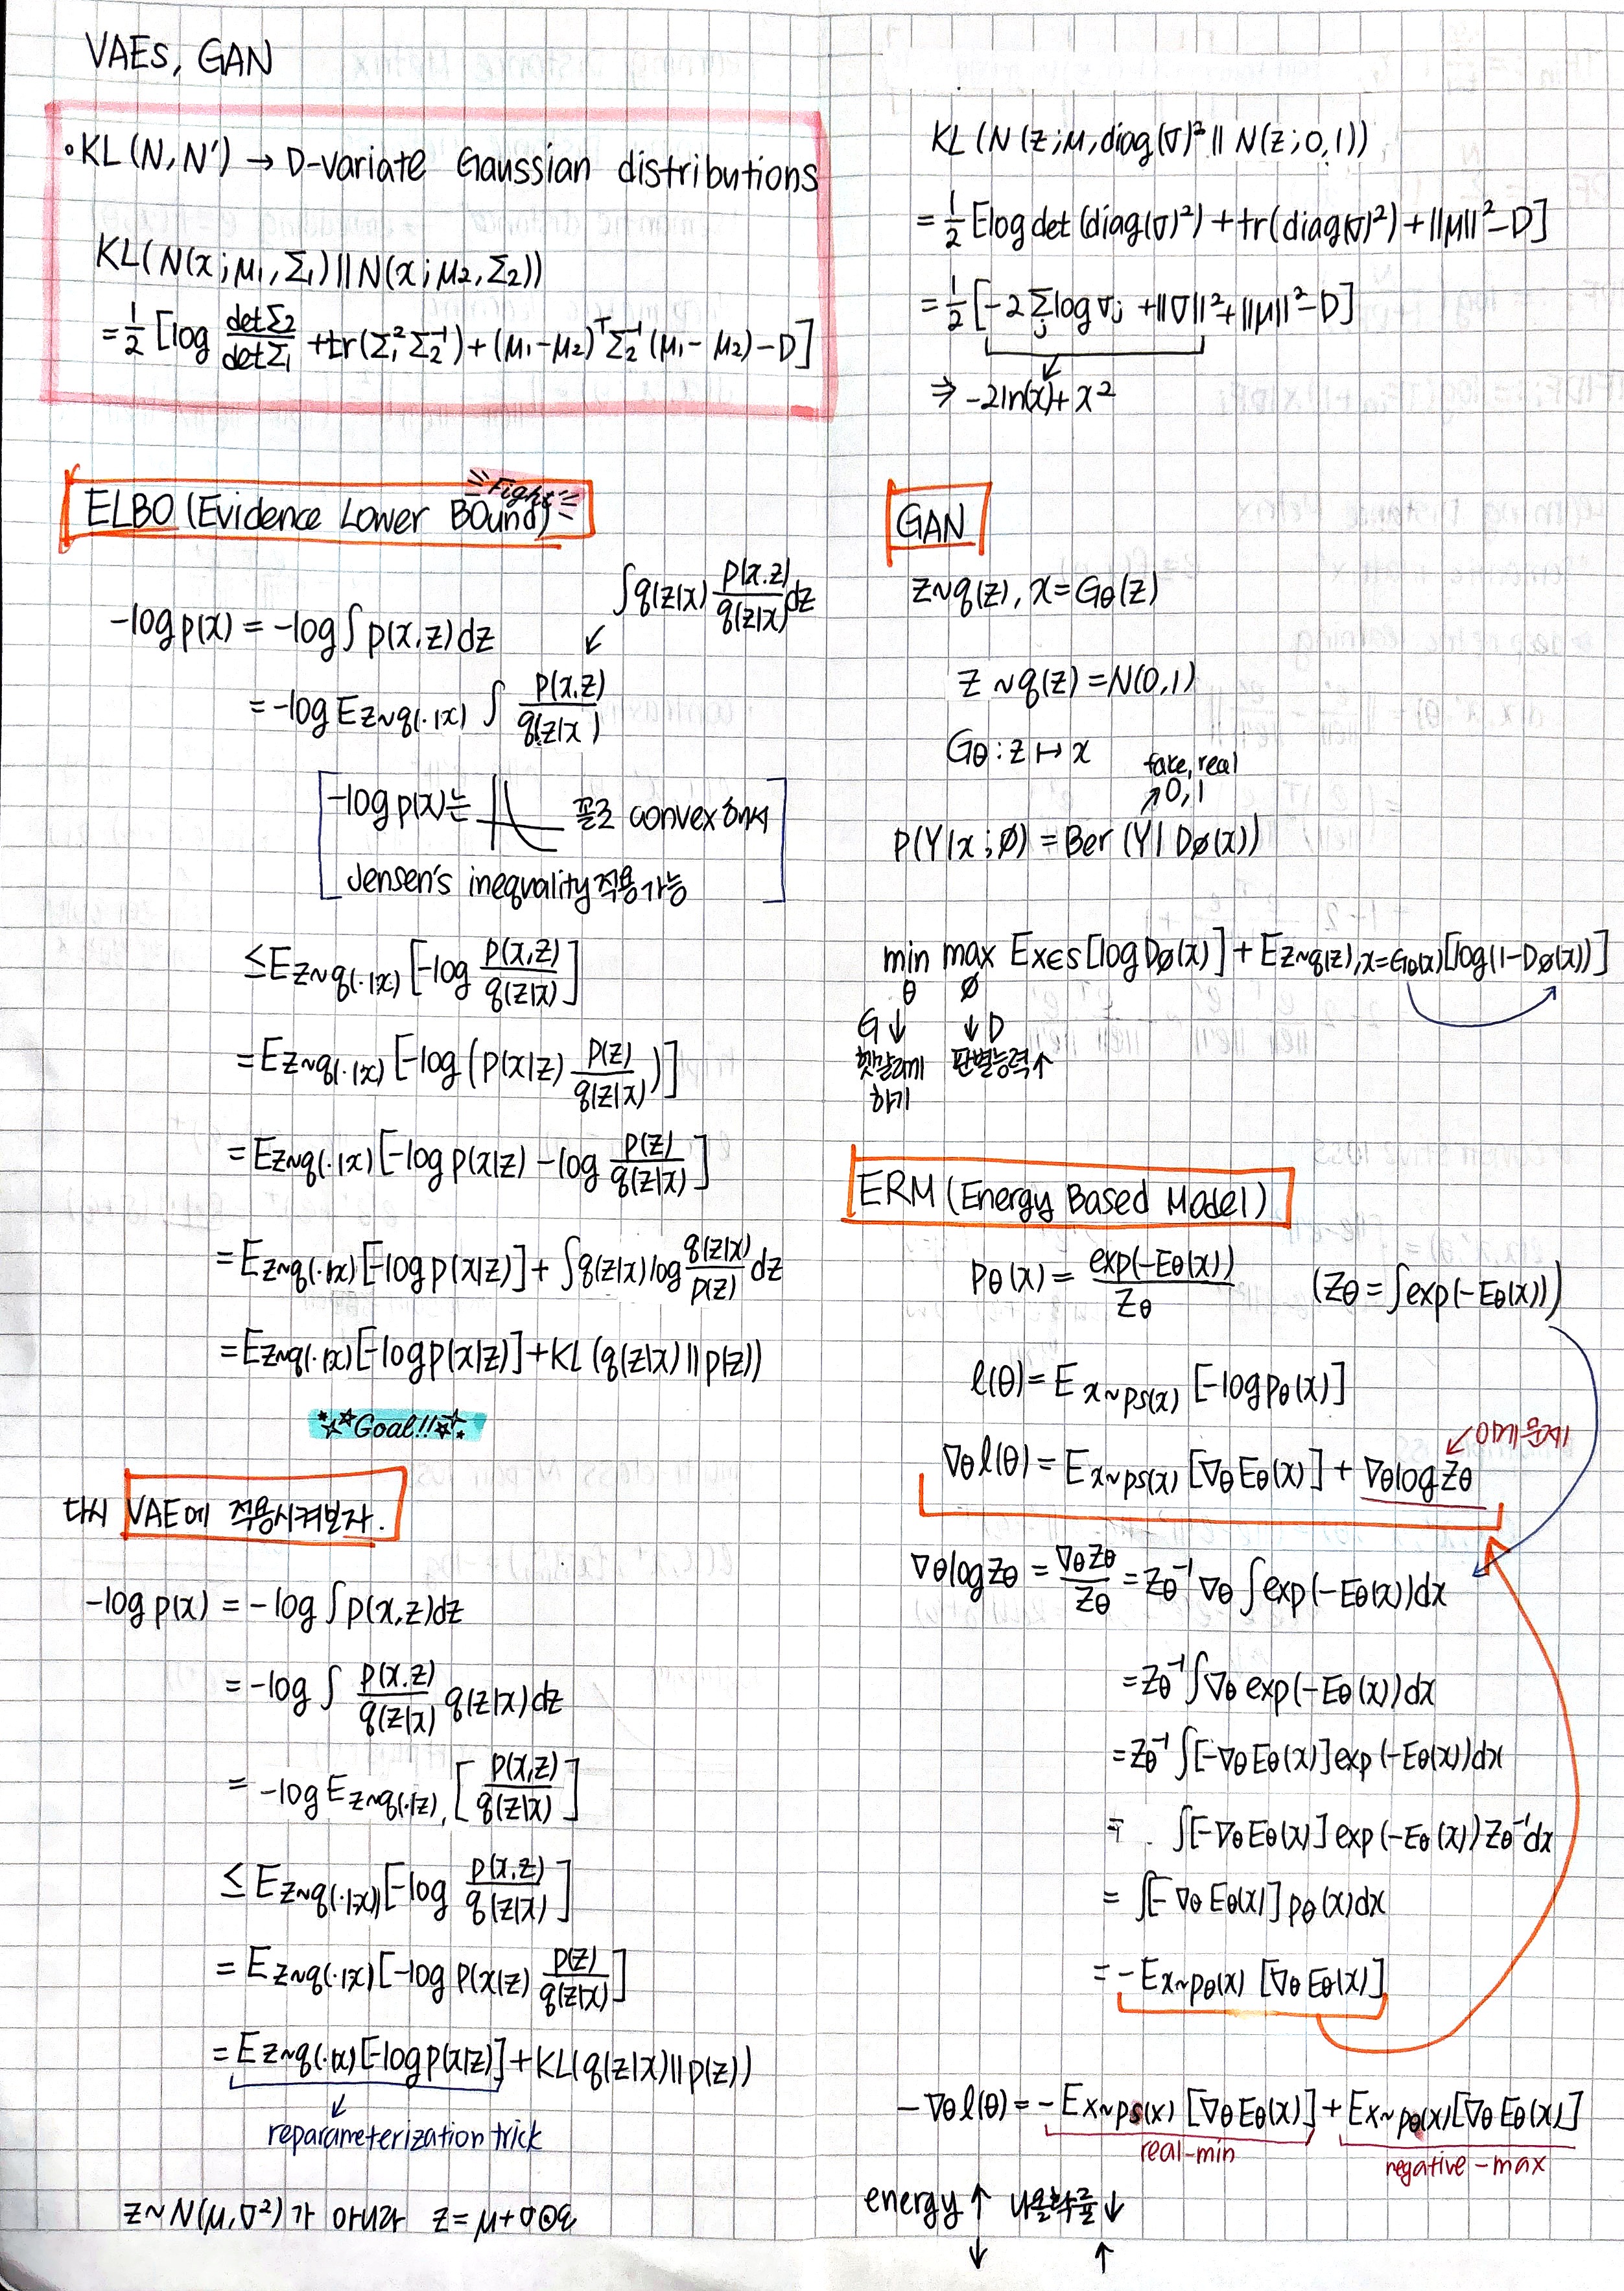 VAEs, GAN
• KL(N, N') → D-variate Gaussian distributions
KL(N(x; μ₁, Σ₁) || N(x; μ₂, Σ₂))
= 1/2 [log detΣ₂/detΣ₁ + tr(Σ₁²Σ₂⁻¹) + (μ₁-μ₂)ᵀΣ₂⁻¹(μ₁-μ₂) - D]
ELBO (Evidence Lower BOund)
Fight
-log p(x) = -log ∫ p(x,z) dz
∫q(z|x) p(x,z)/q(z|x) dz
↙
= -log E z~q(·|x) ∫ p(x,z)/q(z|x)
-log p(x)는 꼴로 convex 해서
Jensen's inequality 적용 가능
≤ E z~q(·|x) [-log p(x,z)/q(z|x)]
= E z~q(·|x) [-log (p(x|z) p(z)/q(z|x))]
= E z~q(·|x) [-log p(x|z) - log p(z)/q(z|x)]
= E z~q(·|x) [-log p(x|z)] + ∫q(z|x) log q(z|x)/p(z) dz
= E z~q(·|x) [-log p(x|z)] + KL (q(z|x) || p(z))
Goal!!
다시 VAE에 적용시켜보자.
-log p(x) = -log ∫ p(x,z)dz
= -log ∫ p(x,z)/q(z|x) q(z|x) dz
= -log E z~q(·|z), [p(x,z)/q(z|x)]
≤ E z~q(·|x) [-log p(x,z)/q(z|x)]
= E z~q(·|x) [-log p(x|z) p(z)/q(z|x)]
= E z~q(·|x) [-log p(x|z)] + KL(q(z|x) || p(z))
↙
reparameterization trick
z~N(μ,σ²)가 아니라 z = μ + σ⊙ε
KL (N(z; μ, diag(σ)² || N(z; 0, 1))
= 1/2 E log det (diag(σ)²) + tr(diag(σ)²) + ||μ||² - D]
= 1/2 [-2 Σj log σj + ||σ||² + ||μ||² - D]
⇒ -2ln(x) + x²
GAN
z~q(z), x = Gθ(z)
z ~ q(z) = N(0,1)
Gθ : z ↦ x
fake, real
↗ 0, 1
P(Y|x; ø) = Ber (Y | Dø(x))
min θ max ø E x∈s [log Dø(x)] + E z~q(z), x=Gθ(x) [log(1-Dø(x))]
G ↓ ↓ D
헷갈리게 판별능력↑
하기
ERM (Energy Based Model)
Pθ(x) = exp(-Eθ(x))/Zθ (Zθ = ∫exp(-Eθ(x)))
ℓ(θ) = E x~ps(x) [-log pθ(x)]
↙ 이게 문제
∇θ ℓ(θ) = E x~ps(x) [∇θ Eθ(x)] + ∇θ log Zθ
∇θ log Zθ = ∇θZθ/Zθ = Zθ⁻¹ ∇θ ∫ exp(-Eθ(x)) dx
= Zθ⁻¹ ∫ ∇θ exp(-Eθ(x)) dx
= Zθ⁻¹ ∫[-∇θ Eθ(x)] exp(-Eθ(x)) dx
= ∫[-∇θ Eθ(x)] exp(-Eθ(x)) Zθ⁻¹ dx
= ∫[-∇θ Eθ(x)] pθ(x) dx
= -E x~pθ(x) [∇θ Eθ(x)]
-∇θ ℓ(θ) = -E x~ps(x) [∇θ Eθ(x)] + E x~pθ(x) [∇θ Eθ(x)]
real-min negative-max
energy ↑ 나올확률 ↓
↓ ↑